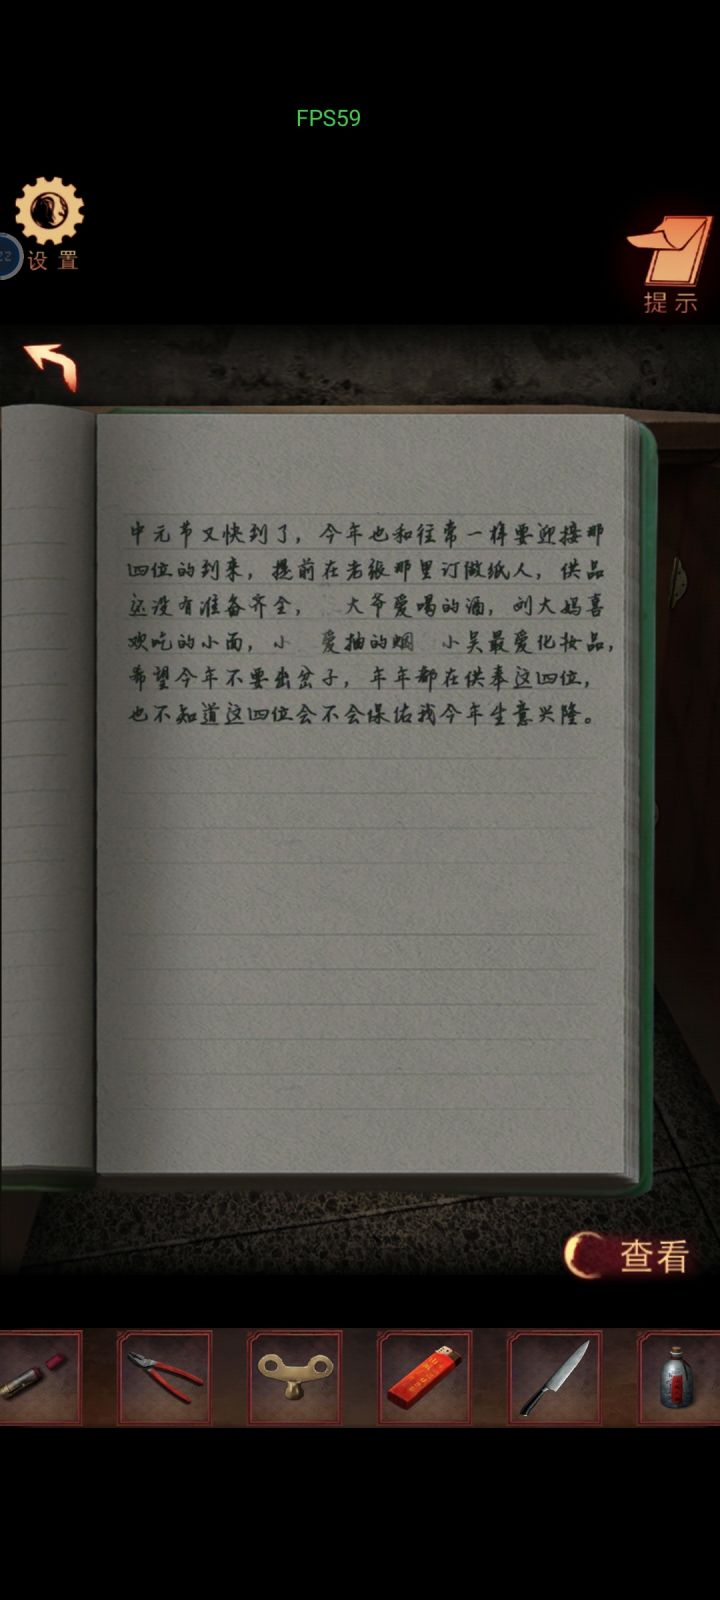 FPS59
设置
提示
中元节又快到了，今年也和往常一样要迎接那
四位的到来，提前在老张那里订做纸人，供品
还没有准备齐全， 大爷爱喝的酒，刘大妈喜
欢吃的小面，小 爱抽的烟 小吴最爱化妆品，
希望今年不要出岔子，年年都在供奉这四位，
也不知道这四位会不会保佑我今年生意兴隆。
查看